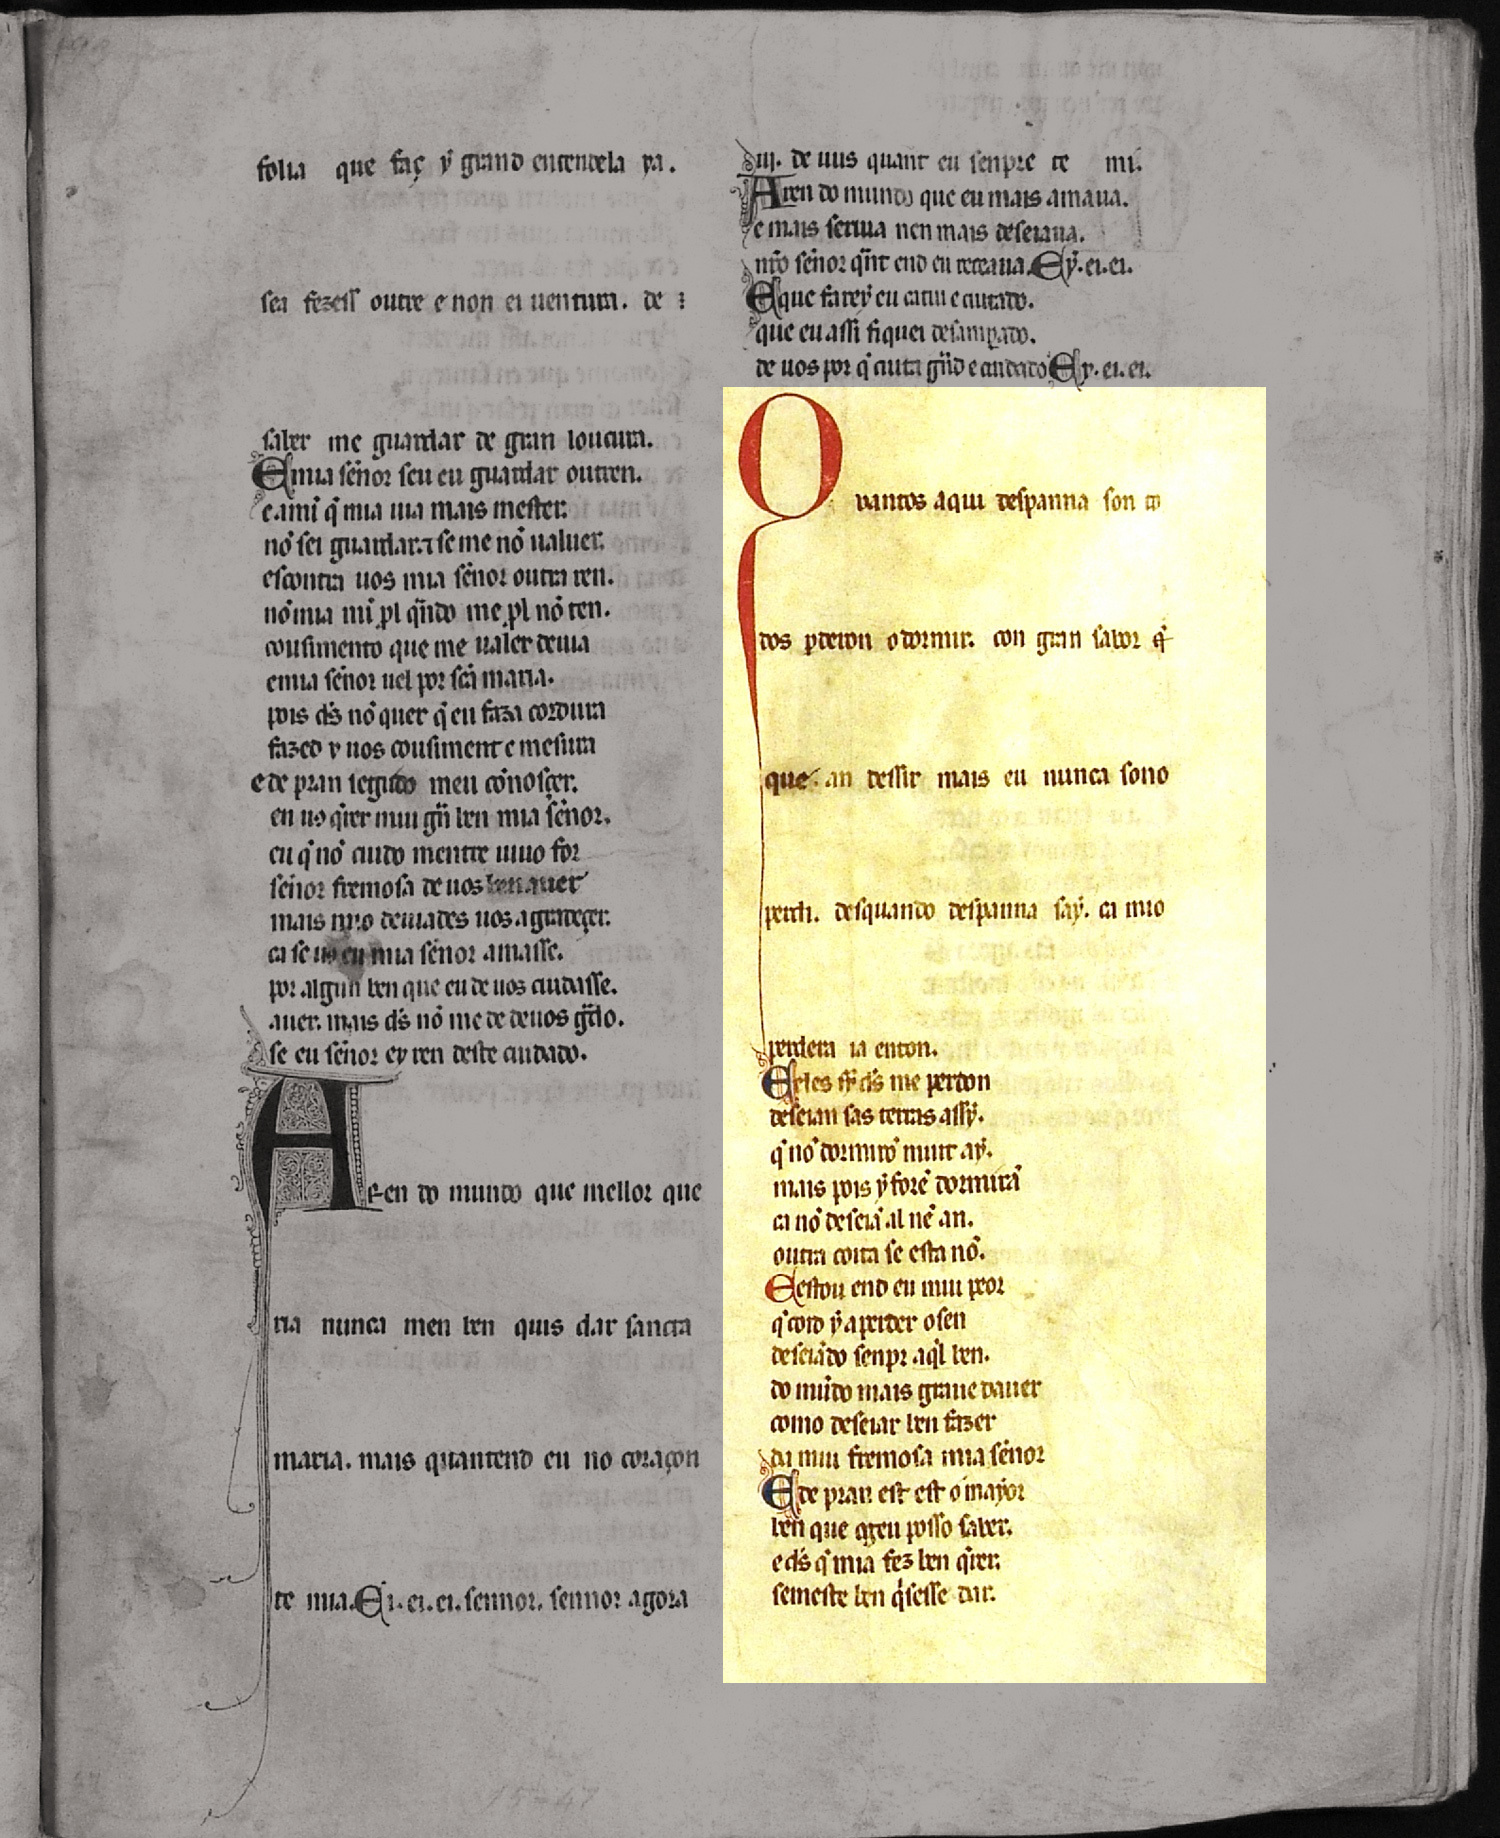 folia que faç ẏ grand entendela ya.
sei fezess outre e non ei uentura. de
saber me guardar de gran loucura.
E mia sẽnor seu eu guardar outren.
e ami q̄ mia uia mais mester.
nõ sei guardar. ⁊ se me nõ ualuer.
escontra uos mia sẽnor outra ren.
cousimento que me ualer deuia
e mia sẽnor uel por sc̃a maria.
pois d̃s nõ quer q̄ eu faza cordura
fazed y uos cousiment e mesura
e de pran seguido meu cõnosçer.
en uos q̃rer mui gñ ben mia sẽnor.
eu q̄ nõ cuido mentre uiuo for
sẽnor fremosa de uos ben auer
mais nño deuiades uos agradeçer.
ca se uos eu mia sẽnor amasse.
por algun ben que eu de uos cuidasse.
auer. mais d̃s nõ me de deuos gr̃do.
se eu sẽnor ey ren deste cuidado.
A Ren do mundo que mellor que
ria nunca men ben quis dar sancta
maria. mais quantend eu no coraçon
te mia. Ei. ei. ei. sennor. sennor agora
ui. de uus quant eu senpre te mi.
A ren do mundo que eu mais amaua.
e mais seruia nen mais deseiaua.
nr̃o sẽnor qñt end eu receaua. Eẏ. ei. ei.
E que farey eu catiu e cuitado.
que eu assi fiquei desamꝑado.
de uos por q̄ cuita gñd e cuidado Ey. ei. ei.
Quantos aqui despanna son to
dos ꝑderon o dormir. con gran sabor q̄
que an dessir mais eu nunca sono
perdi. desquando despanna saẏ. ca mio
perdera ia enton.
E eles se d̃s me perdon
deseian sas terras assẏ.
q̄ nõ dormirõ muit aẏ.
mais pois ẏ forẽ dormirã
ca nõ deseiã al nẽ an.
outra coita se esta nõ.
E estou end eu mui peor
q̄ coid ẏ a perder o sen
deseiãdo senpr aq̃l ben.
do mũdo mais graue dauer
como deseiar ben fazer
da mui fremosa mia sẽnor
E de pran est est o mayor
ben que og eu posso saber.
e d̃s q̄ mia fez ben q̃rer.
semeste ben q̃sesse dar.